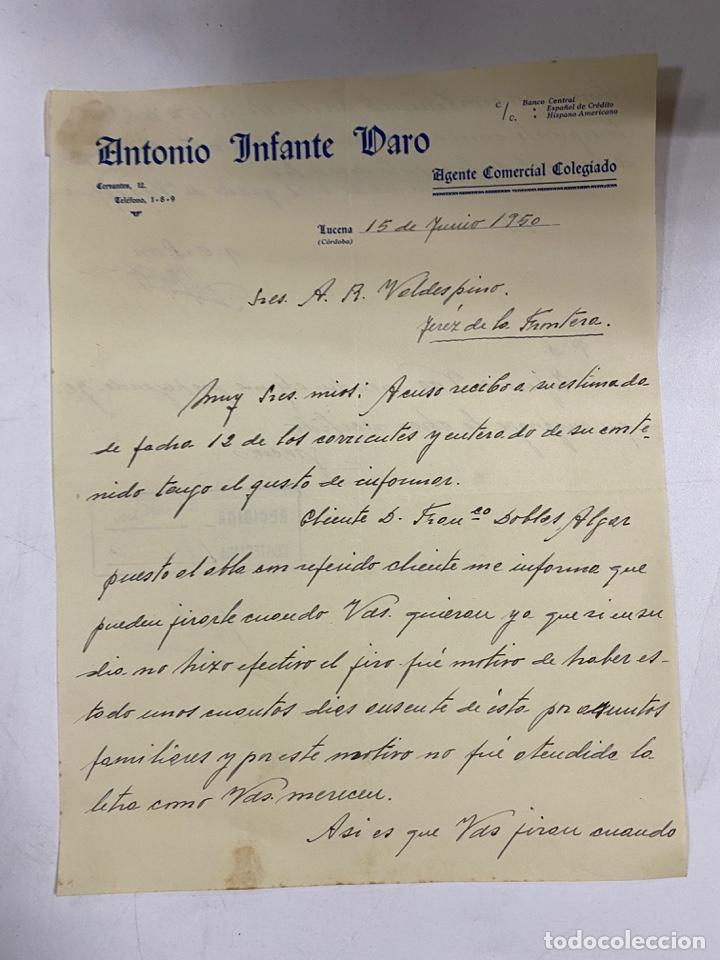 c/c. Banco Central
" Español de Crédito
" Hispano Americano
Antonio Infante Varo
Agente Comercial Colegiado
Cervantes, 12.
Teléfono, 1-8-9
Lucena 15 de Junio 1950
(Córdoba)
Sres. A. R. Valdespino.
Jeréz de la Frontera.
Muy Sres. mios: Acuso recibo á su estimada
de facha 12 de los corrientes y enterado de su conte-
nido tengo el gusto de informar.
Cliente D. Franco Doblas Algar
puesto al abla con referido cliente me informa que
pueden jirarle cuando Vds. quieran ya que si en su
dia no hizo efectivo el jiro fué motivo de haber es-
tado unos cuantos dias ausente de ésta por asuntos
familiares y por este motivo no fué atendida la
letra como Vds. merecen.
Asi es que Vds jiran cuando
todocoleccion
todocoleccion.net